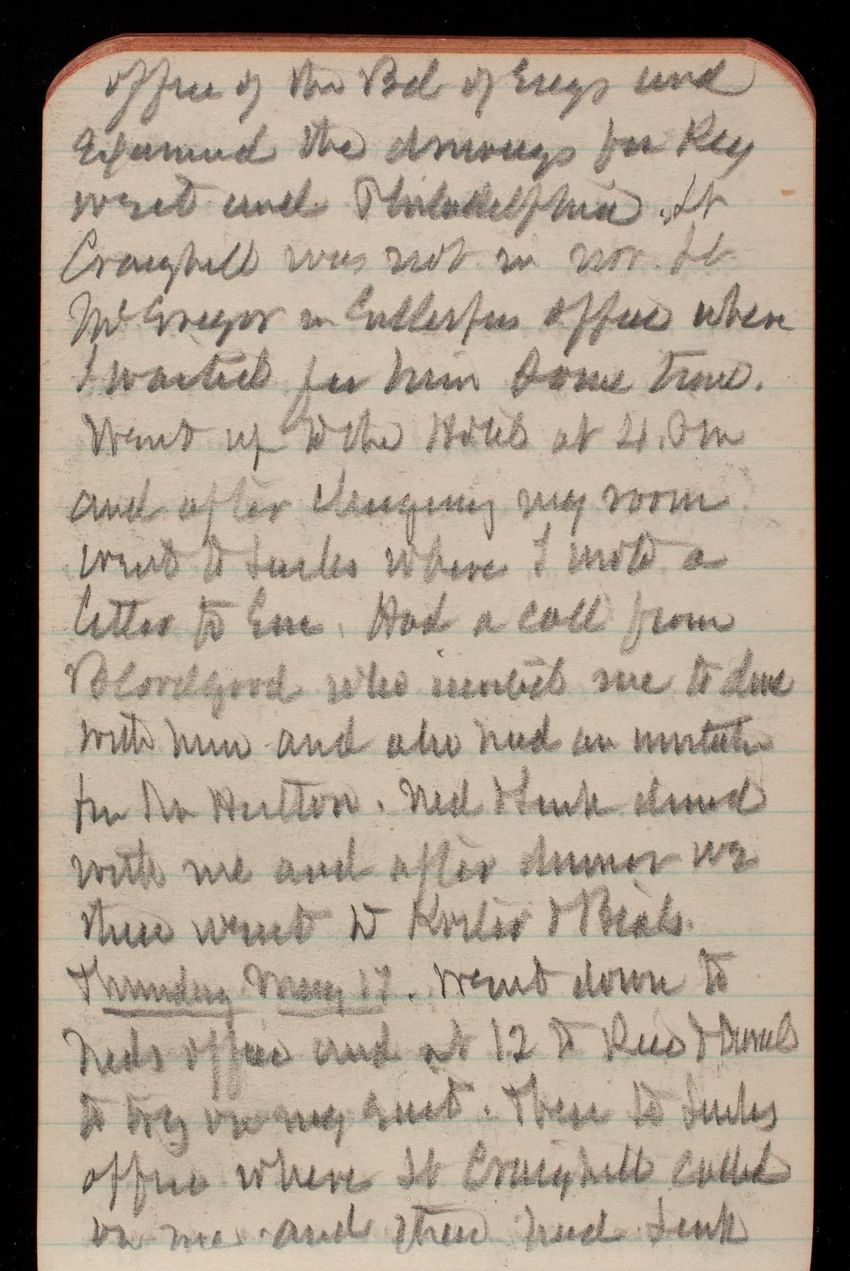 office of the Bd of Engs and
Examined the drawings for Key
west and Philadelphia. Lt
Craighill was not in nor Lt
McGregor in Gillespies office where
I waited for him some time.
Went up to the Hotel at 4. Pm
and after changing my room
went to Lucks where I wrote a
letter to Em. Had a call from
Bloodgood who invited me to dine
with him and also had an invitation
for Dr Hutton. Ned & Luck dined
with me and after dinner we
then went to Koster & Bials.
Thursday May 17. Went down to
Neds office and at 12 to
to try on my suit. Then to Lucks
office where Lt Craighill called
on me and then had Luck